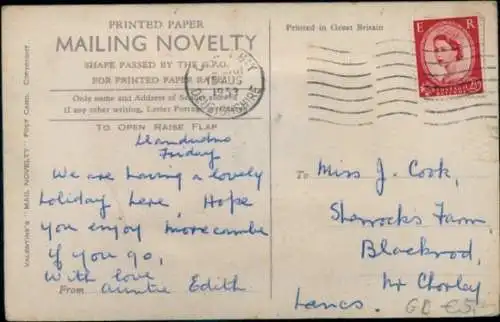 PRINTED PAPER
MAILING NOVELTY
SHAPE PASSED BY THE G.P.O.
FOR PRINTED PAPER
Only name and Address of
if any other writing, Letter
TO OPEN RAISE FLAP
Llandudno
Friday
We are having a lovely
holiday here, Hope
you enjoy morecambe
if you go,
With love
From Auntie Edith
VALENTINE'S "MAIL NOVELTY" POST CARD. COPYRIGHT.
AUG
1953
Printed in Great Britain
E R
To Miss J. Cook,
Sharrocks Farm,
Blackrod,
Nr Chorley
Lancs.
GB €5,-